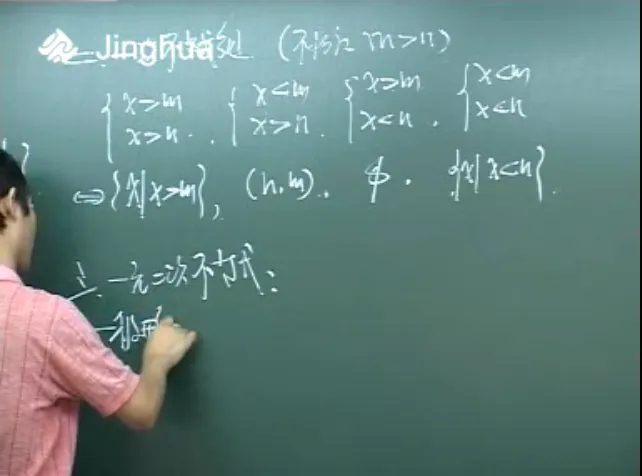 Jinghua
(不妨设 m>n)
{x>m {x<m {x>m {x<m
x>n. x>n. x<n. x<n
⇔ {x|x>m}, (n.m). ϕ. {x|x<n}.
一元二次不等式:
一般